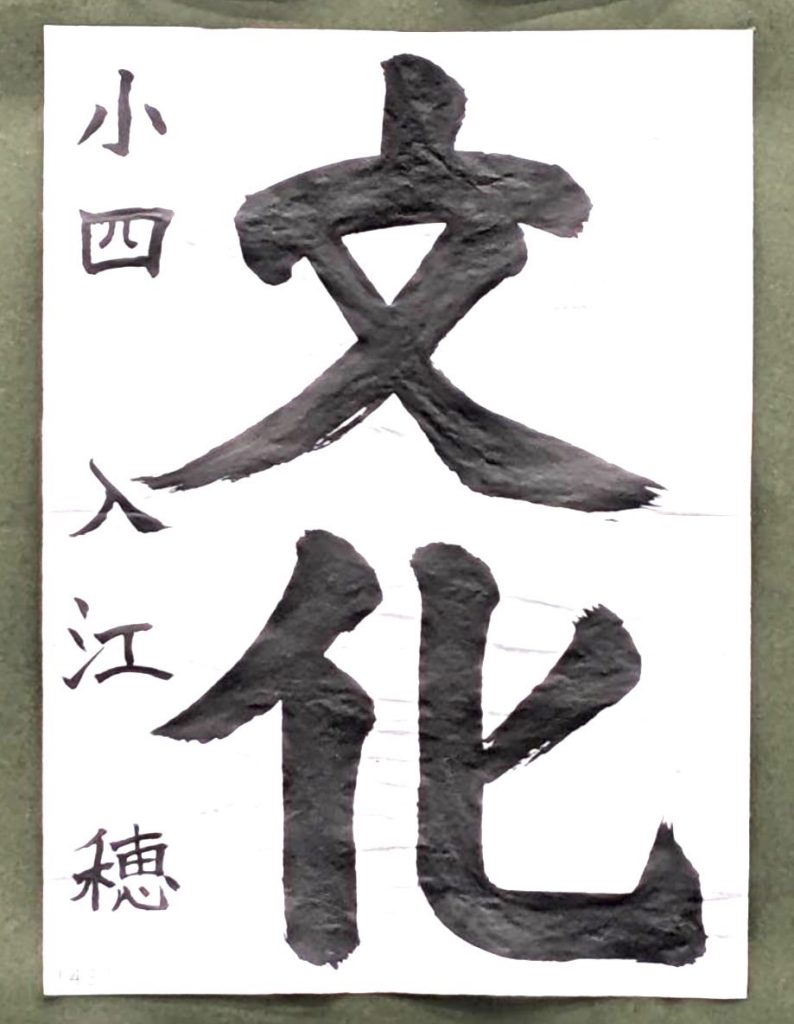 文化
小四 入江 穂